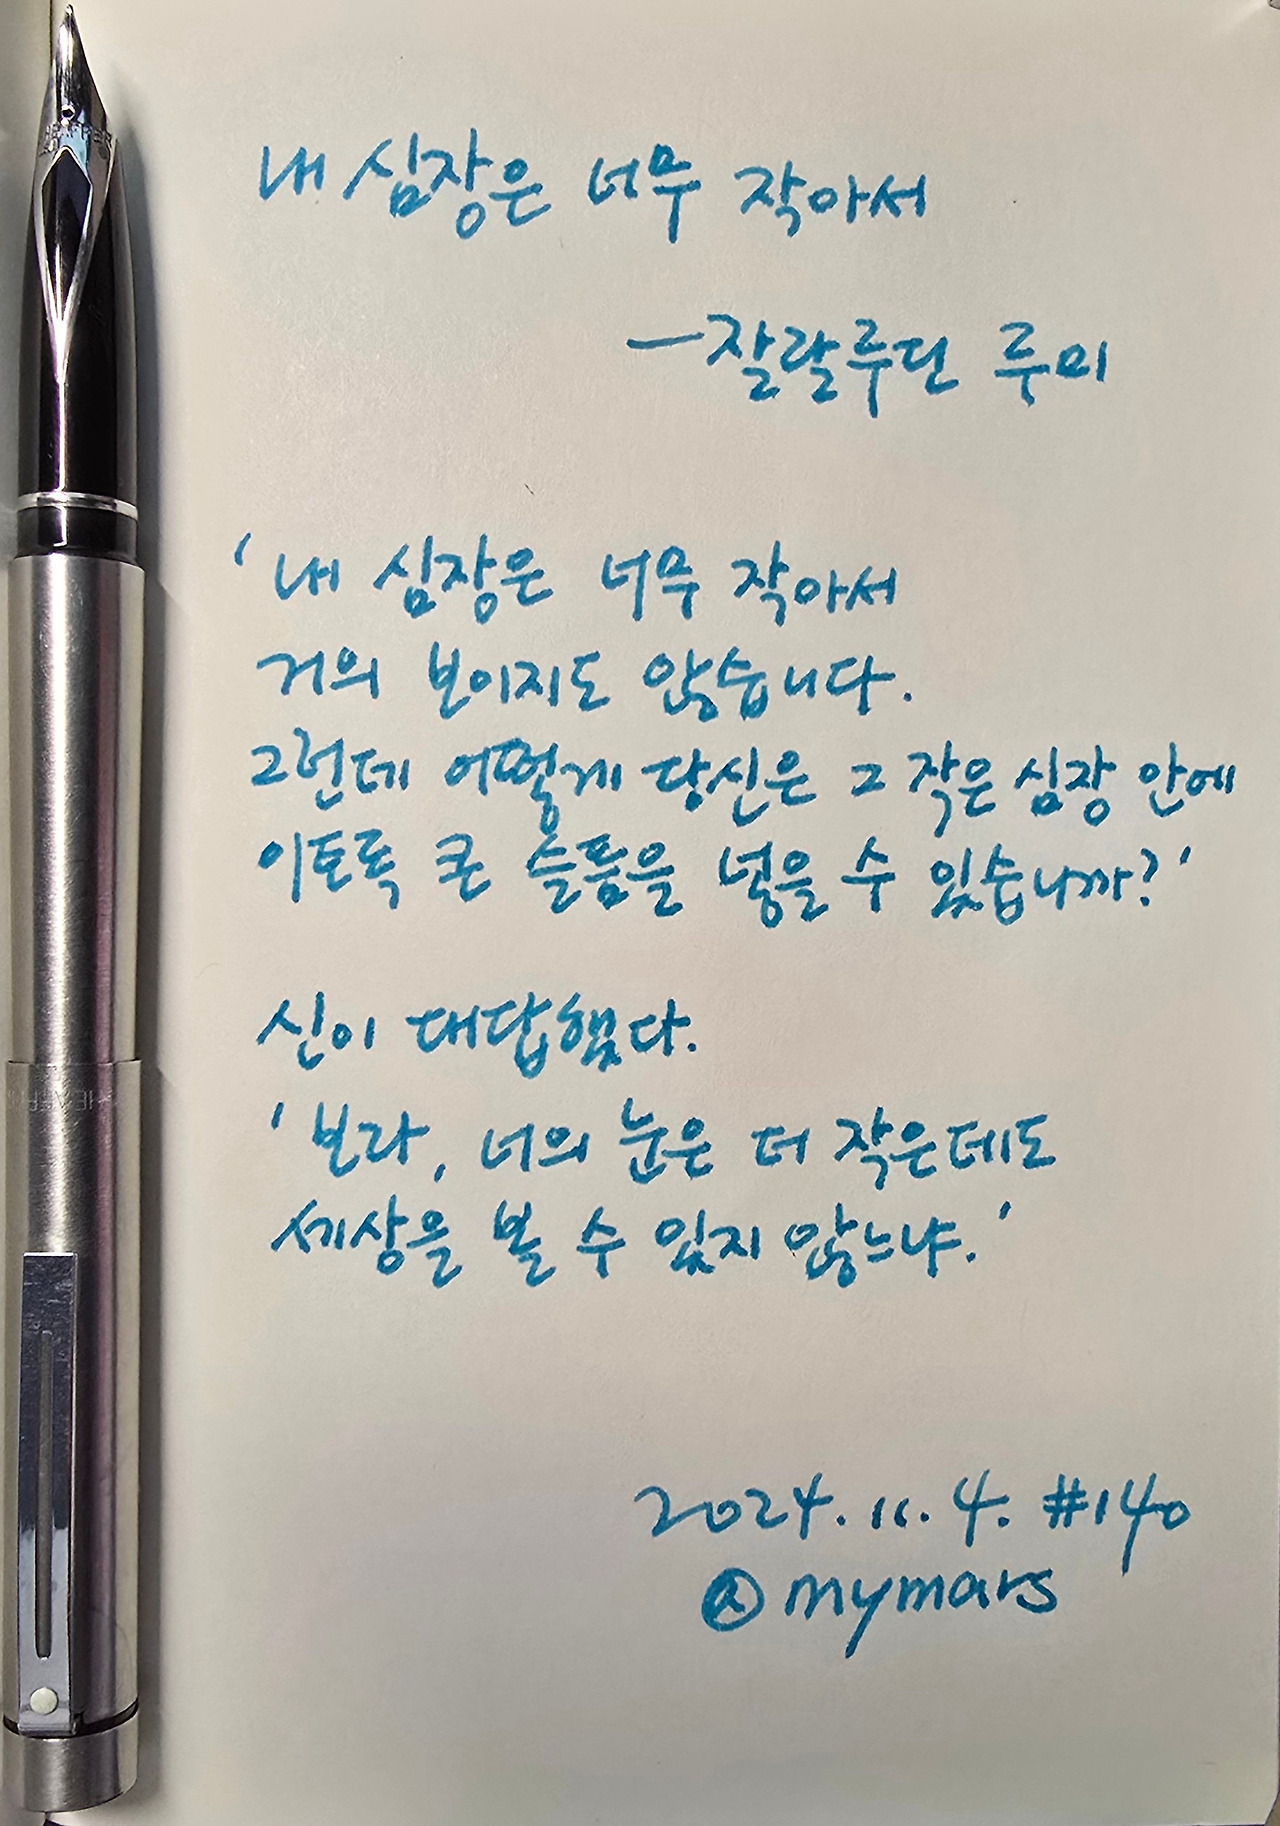 내 심장은 너무 작아서
—잘랄루딘 루미
'내 심장은 너무 작아서
거의 보이지도 않습니다.
그런데 어떻게 당신은 그 작은 심장 안에
이토록 큰 슬픔을 넣을 수 있습니까?'
신이 대답했다.
'보라, 너의 눈은 더 작은데도
세상을 볼 수 있지 않느냐.'
2024. 11. 4. #140
@mymars
SHEAFFER